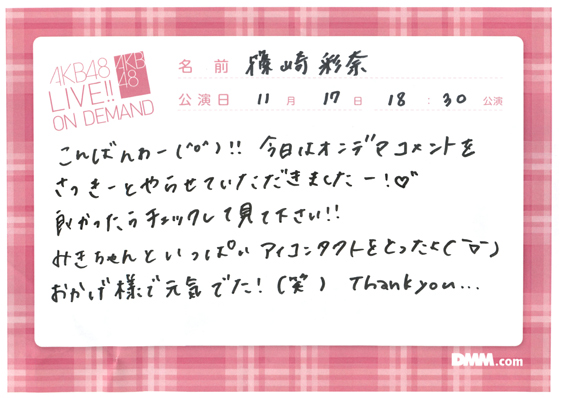 AKB48
LIVE!!
ON DEMAND
AKB
48
名 前 篠崎彩奈
公演日 11 月 17 日 18 : 30 公演
こんばんわー(^o^)!! 今日はオンデマコメントを
さっきーとやらせていただきましたー!♡
良かったらチェックして見て下さい!!
みきちゃんといっぱいアイコンタクトをとったよ(￣▽￣)
おかげ様で元気でた!(笑) Thank you...
DMM.com